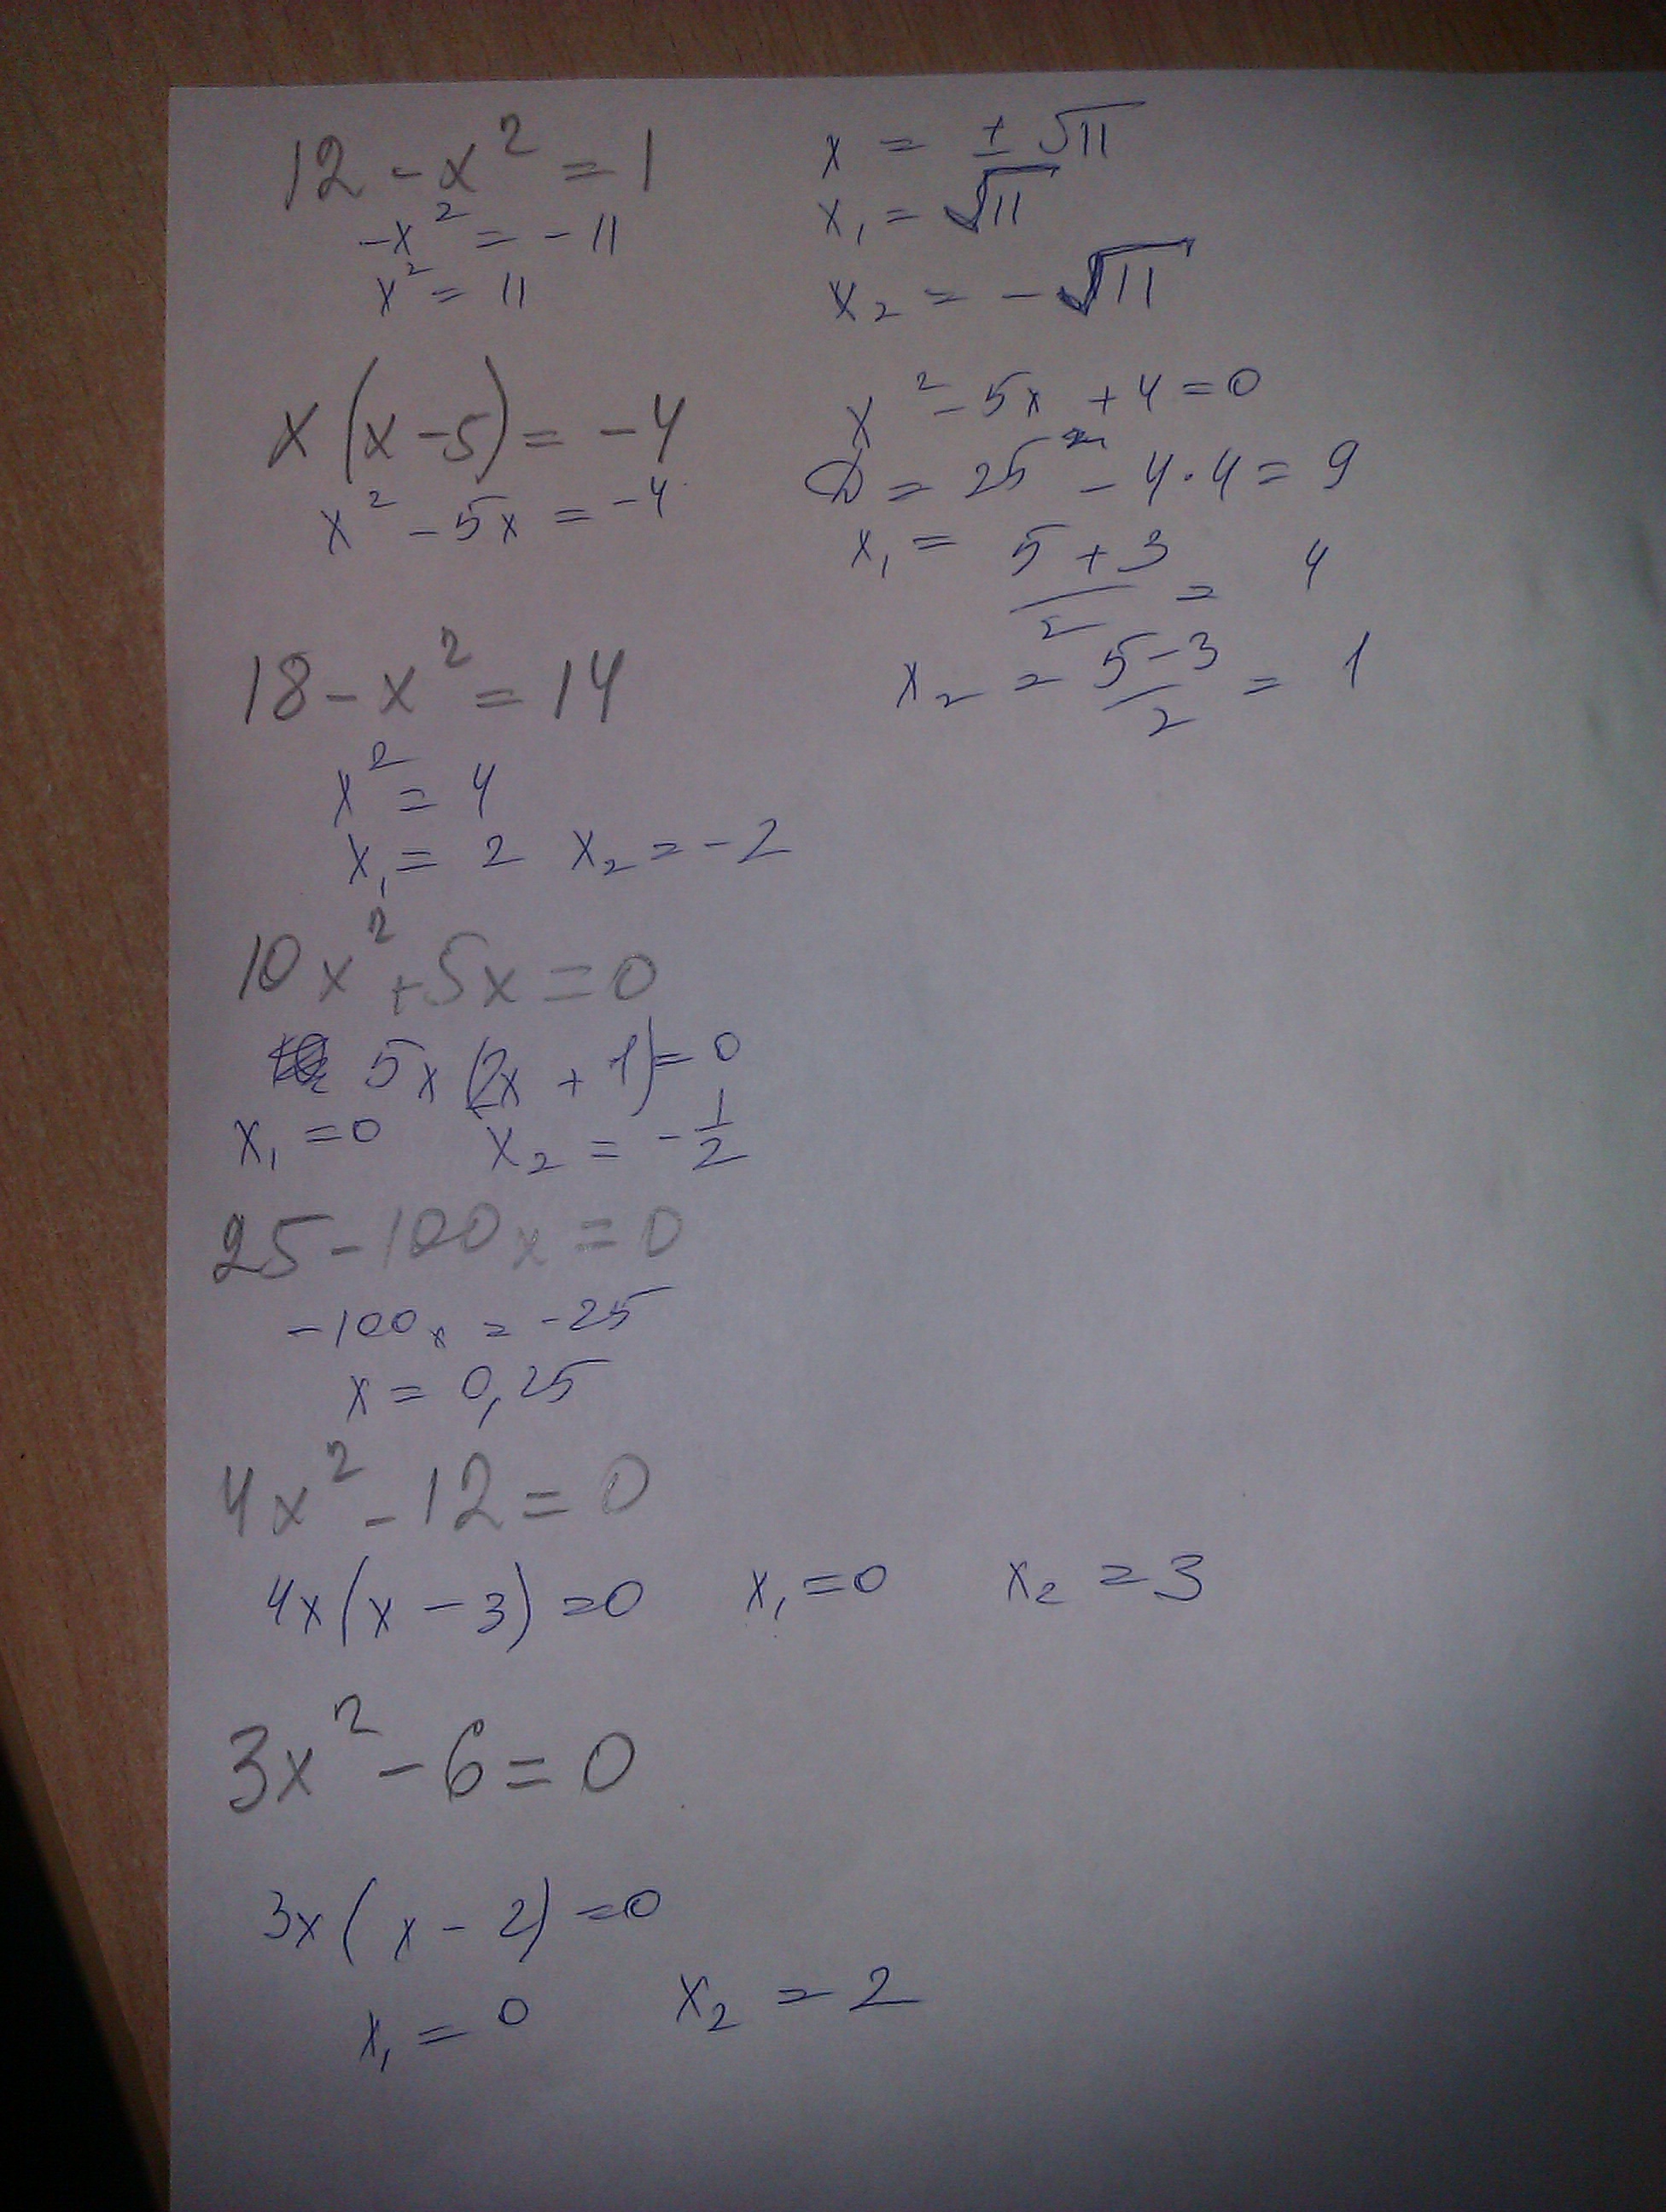 12 - x² = 1
-x² = -11
x² = 11
x = ± √11
x₁ = √11
x₂ = - √11
x(x-5) = -4
x² - 5x = -4
x² - 5x + 4 = 0
D = 25 - 4·4 = 9
x₁ = (5+3)/2 = 4
x₂ = (5-3)/2 = 1
18 - x² = 14
x² = 4
x₁ = 2 x₂ = -2
10x² + 5x = 0
5x(2x + 1) = 0
x₁ = 0 x₂ = -1/2
25 - 100x = 0
-100x = -25
x = 0,25
4x² - 12 = 0
4x(x - 3) = 0 x₁ = 0 x₂ = 3
3x² - 6 = 0
3x(x - 2) = 0
x₁ = 0 x₂ = 2